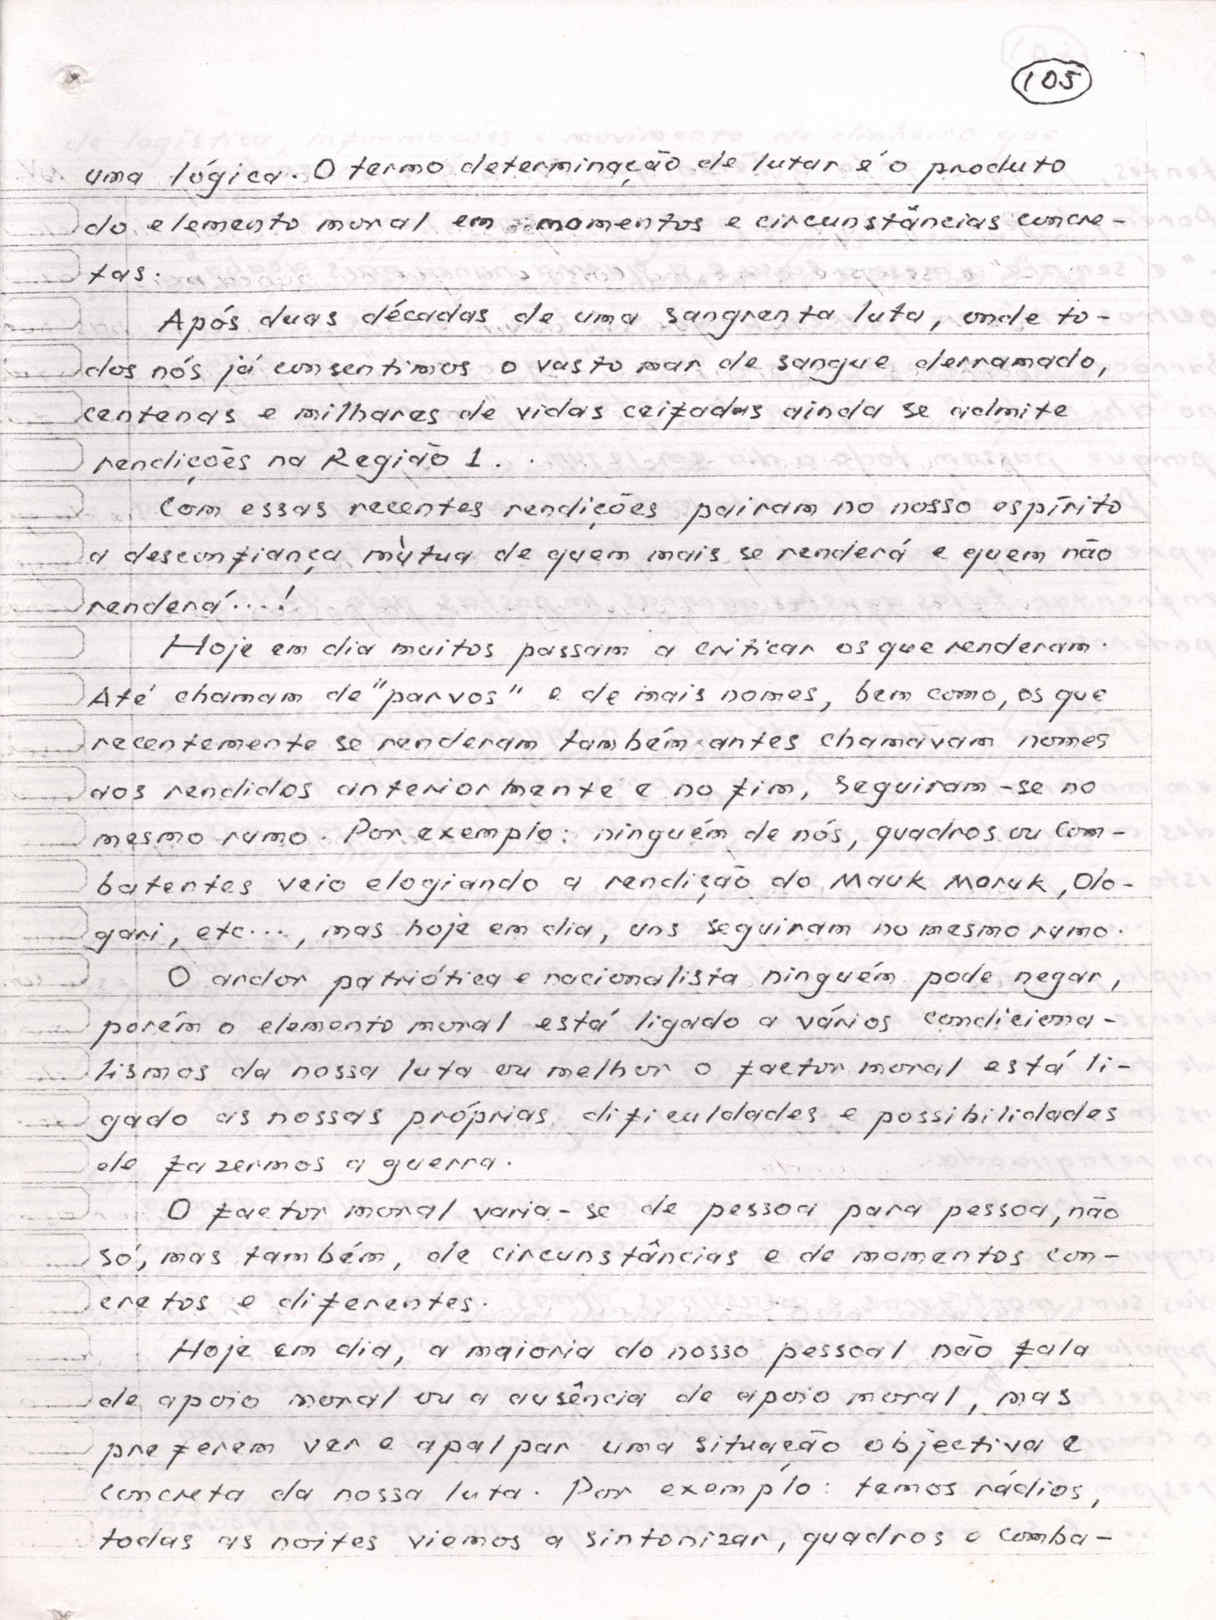 105
uma lógica. O termo determinação de lutar é o produto
do elemento moral em momentos e circunstâncias concre-
tas.
Após duas décadas de uma sangrenta luta, onde to-
dos nós já consentimos o vasto mar de sangue derramado,
centenas e milhares de vidas ceifadas ainda se admite
rendições na Região 1.
Com essas recentes rendições pairam no nosso espírito
a desconfiança mùtua de quem mais se renderá e quem não
renderá...!
Hoje em dia muitos passam a criticar os que renderam.
Até chamam de "parvos" e de mais nomes, bem como, os que
recentemente se renderam também antes chamavam nomes
aos rendidos anteriormente e no fim, seguiram-se no
mesmo rumo. Por exemplo: ninguém de nós, quadros ou com-
batentes veio elogiando a rendição do Mauk Moruk, Olo-
gari, etc..., mas hoje em dia, uns seguiram no mesmo rumo.
O ardor patriótica e nacionalista ninguém pode negar,
porém o elemento moral está ligado a vários condiciona-
lismos da nossa luta ou melhor o factor moral está li-
gado as nossas próprias dificuldades e possibilidades
de fazermos a guerra.
O factor moral varia-se de pessoa para pessoa, não
só, mas também, de circunstâncias e de momentos con-
cretos e diferentes.
Hoje em dia, a maioria do nosso pessoal não fala
de apoio moral ou a ausência de apoio moral, mas
preferem ver e apalpar uma situação objectiva e
concreta da nossa luta. Por exemplo: temos rádios,
todas as noites viemos a sintonizar, quadros e comba-